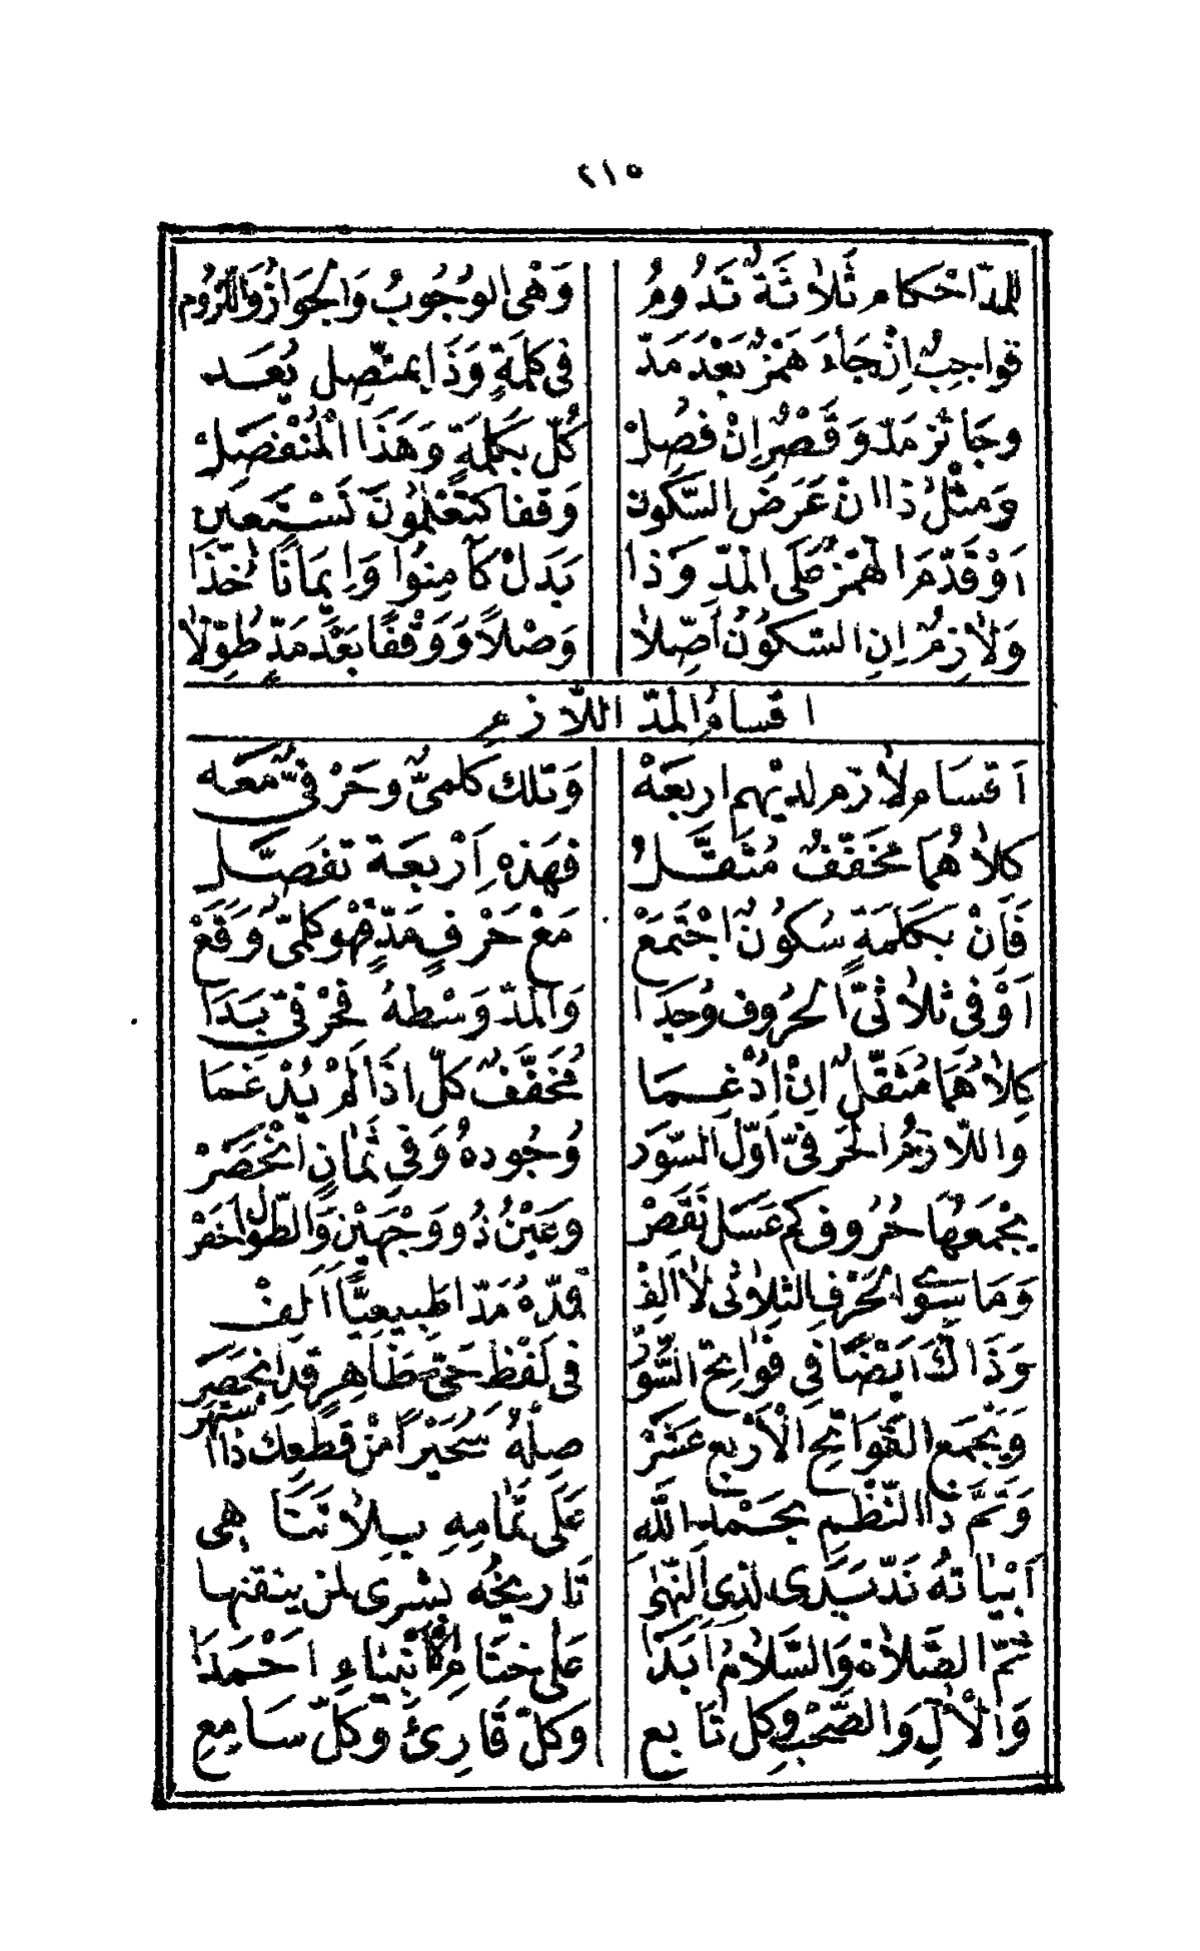 ٢١٥
للمدّ احْكام ثَلاثَةٌ تَدُومُ وَهْيَ الوُجُوبُ وَالجَوَازُ وَاللّزُوم
فواجِبٌ اِنْ جَاءَ هَمْزٌ بَعْدَ مَدّ فى كلمَةٍ وَذَا بمتّصِل يُعَد
وجَائز مَدّ وَقَصْرٌ اِنْ فُصِلْ كُلّ بكلمَةٍ وَهَذَا الْمُنْفَصِلْ
وَمثْلُ ذا ان عَرَضَ السّكون وَقفا كتَعْلمُونَ نَسْتَعين
اَوْ قَدّمَ الهَمْزُ عَلَى المَدّ وَذا بَدَلْ كَآمنُوا وَاِيمَانًا خُذَا
وَلاَزِمٌ اِنِ السّكوُنُ اُصّلاَ وَصْلاً وَوَقْفًا بَعْدَ مَدّ طُوِّلاَ
اقسامُ المَدّ اللاّزم
اَقسَام لاَزم لديْهم اربَعَهْ وَتلك كلمىٌّ وحَرْفىٌّ مَعَه
كلاَهُمَا مخَفّفٌ مُثَقَّلُ فهَذهِ اَرْبعَة تفَصّل
فَاَنْ بكلمَةٍ سُكوُنٌ اجْتَمَعْ مَعْ حَرْفِ مَدّ فهْو كلمىٌّ وَقَعْ
اَوْ فى ثلاثىّ الحرُوف وُجدَا وَالمَدّ وَسْطهُ فحَرْفىّ بَدَا
كلاَهُمَا مُثَقّلٌ انْ اُدْغِمَا مُخَفّفٌ كلّ اذَا لَمْ يُدْغَمَا
وَاللاّزمُ الحَرفىّ اَوّلَ السّوَر وُجُودهُ وَفى ثَمَانٍ انْحَصَرْ
يجْمَعهَا حُرُوف كم عَسَل نَقَصْ وعَيْنُ ذُو وَجْهَيْن وَالطّول اخَفّ
وَمَا سِوَى الحَرْفِ الثلاثى لاَ اَلِفْ فمَدّهُ مَدّا طَبيعيًّا اُلِفْ
وَذَاكَ ايْضًا فِى فوَاتح السُّوَرْ فى لَفْظ حَىّ ظَاهِر قَد انحَصَر
وَيَجْمَع الفَوَاتح الاَرْبع عَشَرْ صلهُ سُحَيْرًا مَنْ قطَعك ذا اشتهر
وَتَمّ ذا النّظْم بحَمْد الله عَلَى تَمَامِهِ بلا تَنَاهى
اَبْيَاتهُ نَدّ بَدَى لذِى النّهَى تَاريخُه بشرَى لمن يتقنها
ثمّ الصَّلاَة وَالسَّلاَمُ اَبَدَا عَلَى ختَام الاَنْبيَاءِ احْمَدَا
وَالاَلِ وَالصّحْب وكل تَابع وَكلّ قَارِئ وَكلّ سَامِع